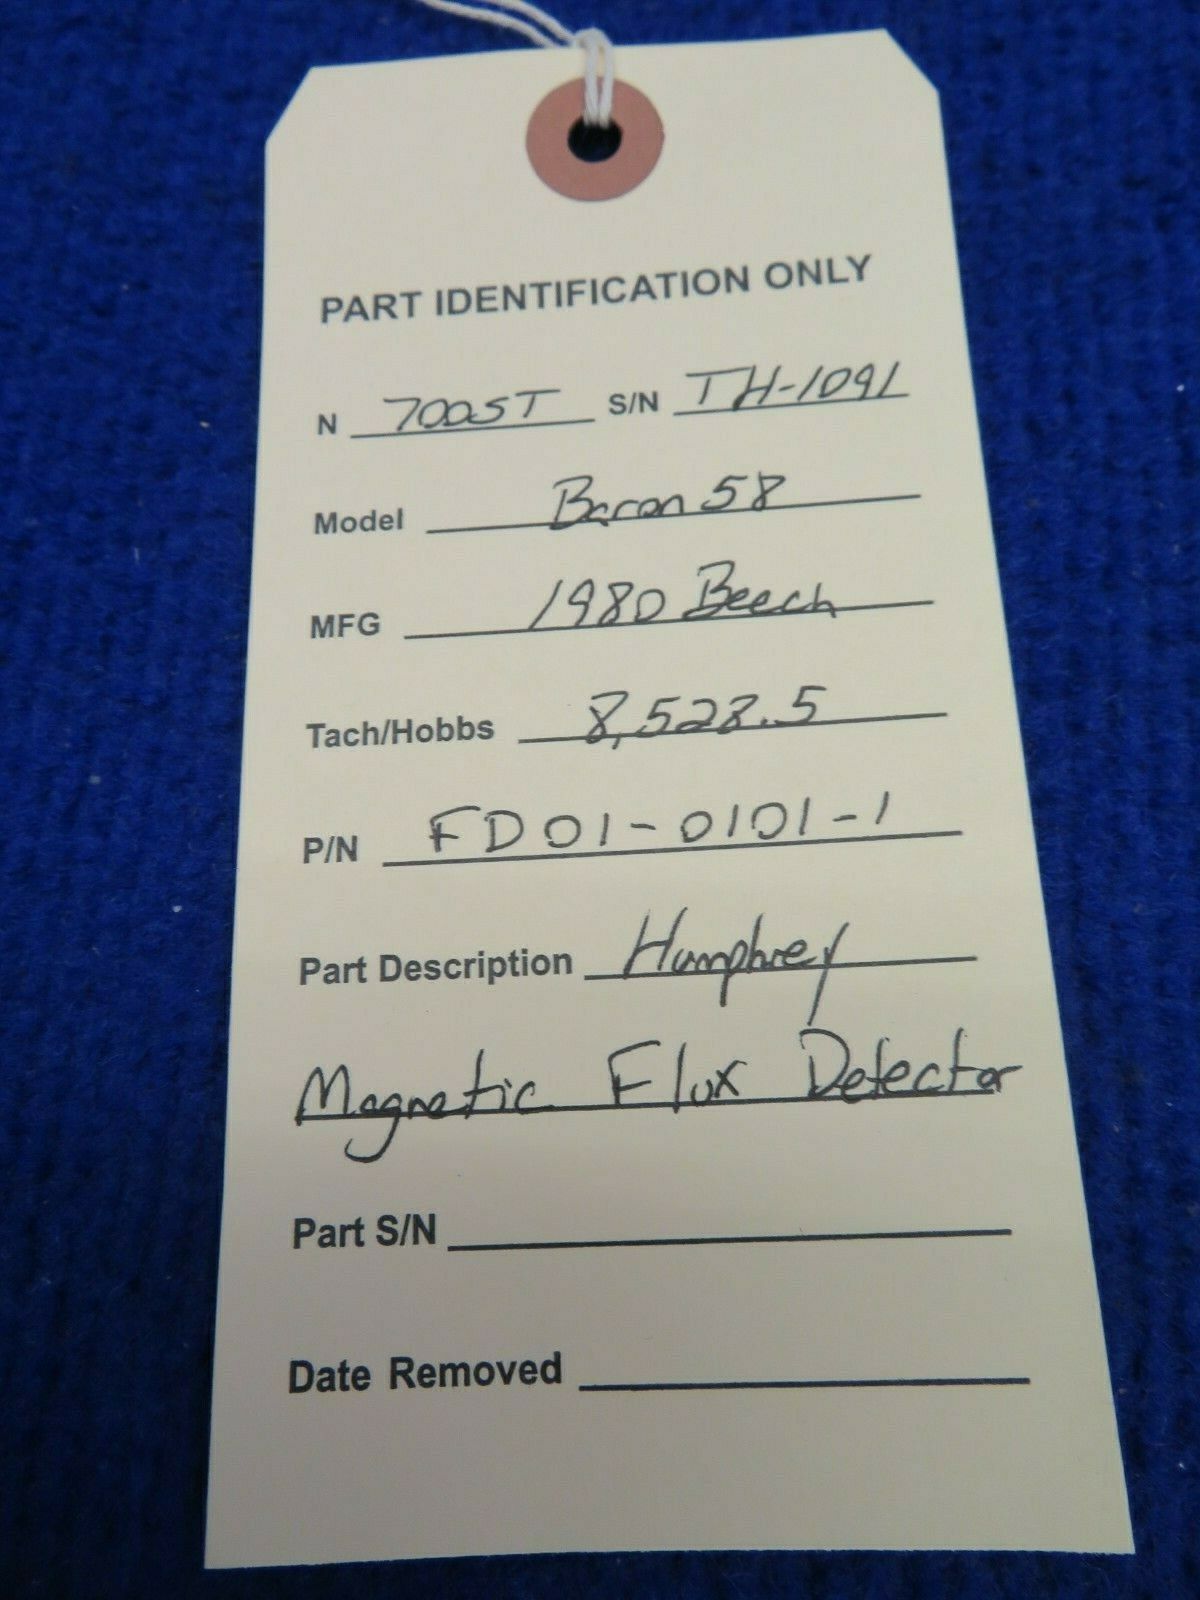 PART IDENTIFICATION ONLY
N 700ST S/N TH-1091
Model Baron 58
MFG 1980 Beech
Tach/Hobbs 8,528.5
P/N FD01-0101-1
Part Description Humphrey
Magnetic Flux Detector
Part S/N
Date Removed